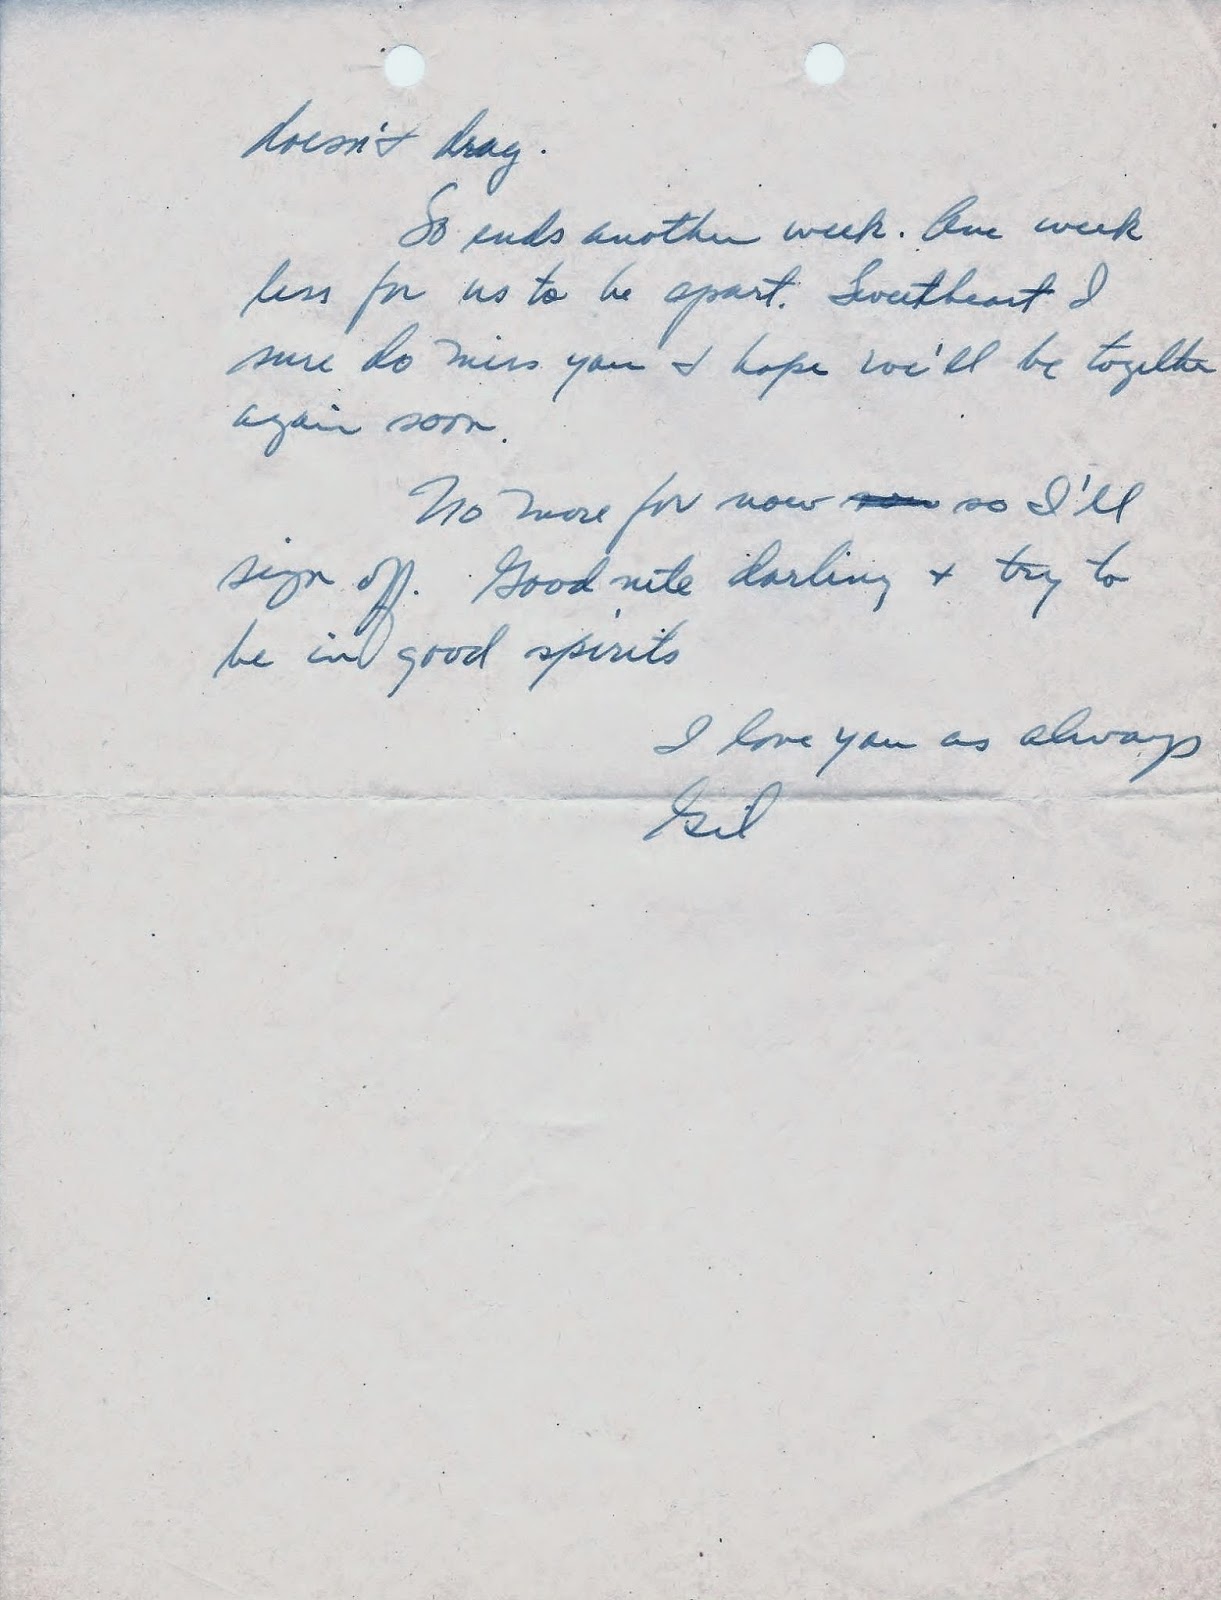 doesn't drag.
So ends another week. One week
less for us to be apart. Sweetheart I
sure do miss you & hope we'll be together
again soon.
No more for now so I'll
sign off. Good nite darling & try to
be in good spirits
I love you as always
Gil